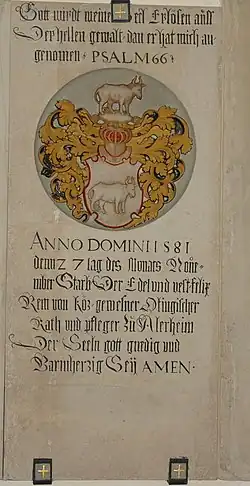 Gott würdt meine Sel Erlösen auss
Der hellen gewalt dan er hat mich an
genomen · PSALM 66 ·
ANNO DOMINI 1581
denn 27 tag des Monats Nove-
mber Starb Der Edel und vest felix
Rem von Köz gewesner Otingischer
Rath und pfleger Zu Alerheim
Der Seeln gott gnedig und
Barmherzig Seÿ AMEN ·